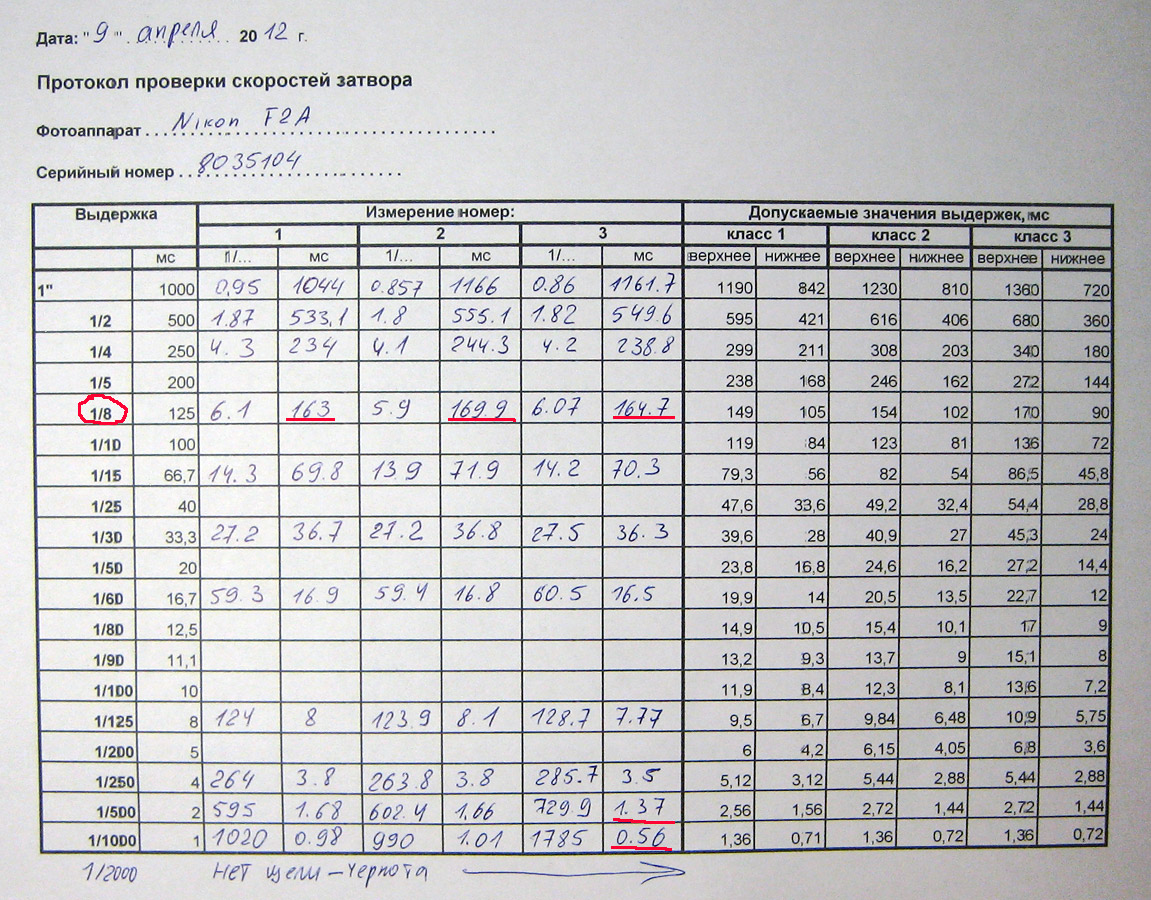 Дата: "9" апреля 2012 г.
Протокол проверки скоростей затвора
Фотоаппарат Nikon F2A
Серийный номер 8035104
Выдержка Измерение номер: Допускаемые значения выдержек, мс
1 2 3 класс 1 класс 2 класс 3
мс 1/... мс 1/... мс 1/... мс верхнее нижнее верхнее нижнее верхнее нижнее
1" 1000 0,95 1044 0.857 1166 0.86 1161.7 1190 842 1230 810 1360 720
1/2 500 1.87 533,1 1.8 555.1 1.82 549.6 595 421 616 406 680 360
1/4 250 4.3 234 4.1 244.3 4.2 238.8 299 211 308 203 340 180
1/5 200 238 168 246 162 272 144
1/8 125 6.1 163 5.9 169.9 6.07 164.7 149 105 154 102 170 90
1/10 100 119 84 123 81 136 72
1/15 66,7 14.3 69.8 13.9 71.9 14.2 70.3 79,3 56 82 54 86,5 45,8
1/25 40 47,6 33,6 49,2 32,4 54,4 28,8
1/30 33,3 27.2 36.7 27.2 36.8 27.5 36.3 39,6 28 40,9 27 45,3 24
1/50 20 23,8 16,8 24,6 16,2 27,2 14,4
1/60 16,7 59.3 16.9 59.4 16.8 60.5 16.5 19,9 14 20,5 13,5 22,7 12
1/80 12,5 14,9 10,5 15,4 10,1 17 9
1/90 11,1 13,2 9,3 13,7 9 15,1 8
1/100 10 11,9 8,4 12,3 8,1 13,6 7,2
1/125 8 124 8 123.9 8.1 128.7 7.77 9,5 6,7 9,84 6,48 10,9 5,75
1/200 5 6 4,2 6,15 4,05 6,8 3,6
1/250 4 264 3.8 263.8 3.8 285.7 3.5 5,12 3,12 5,44 2,88 5,44 2,88
1/500 2 595 1.68 602.4 1,66 729.9 1.37 2,56 1,56 2,72 1,44 2,72 1,44
1/1000 1 1020 0.98 990 1.01 1785 0.56 1,36 0,71 1,36 0,72 1,36 0,72
1/2000 Нет щели - Чернота